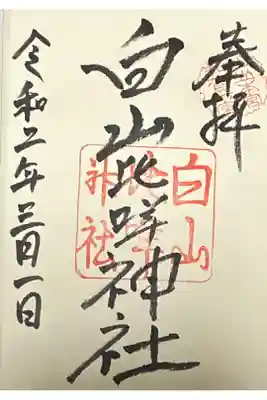 奉拝
白山比咩神社
白山
比咩
神社
令和二年三月一日